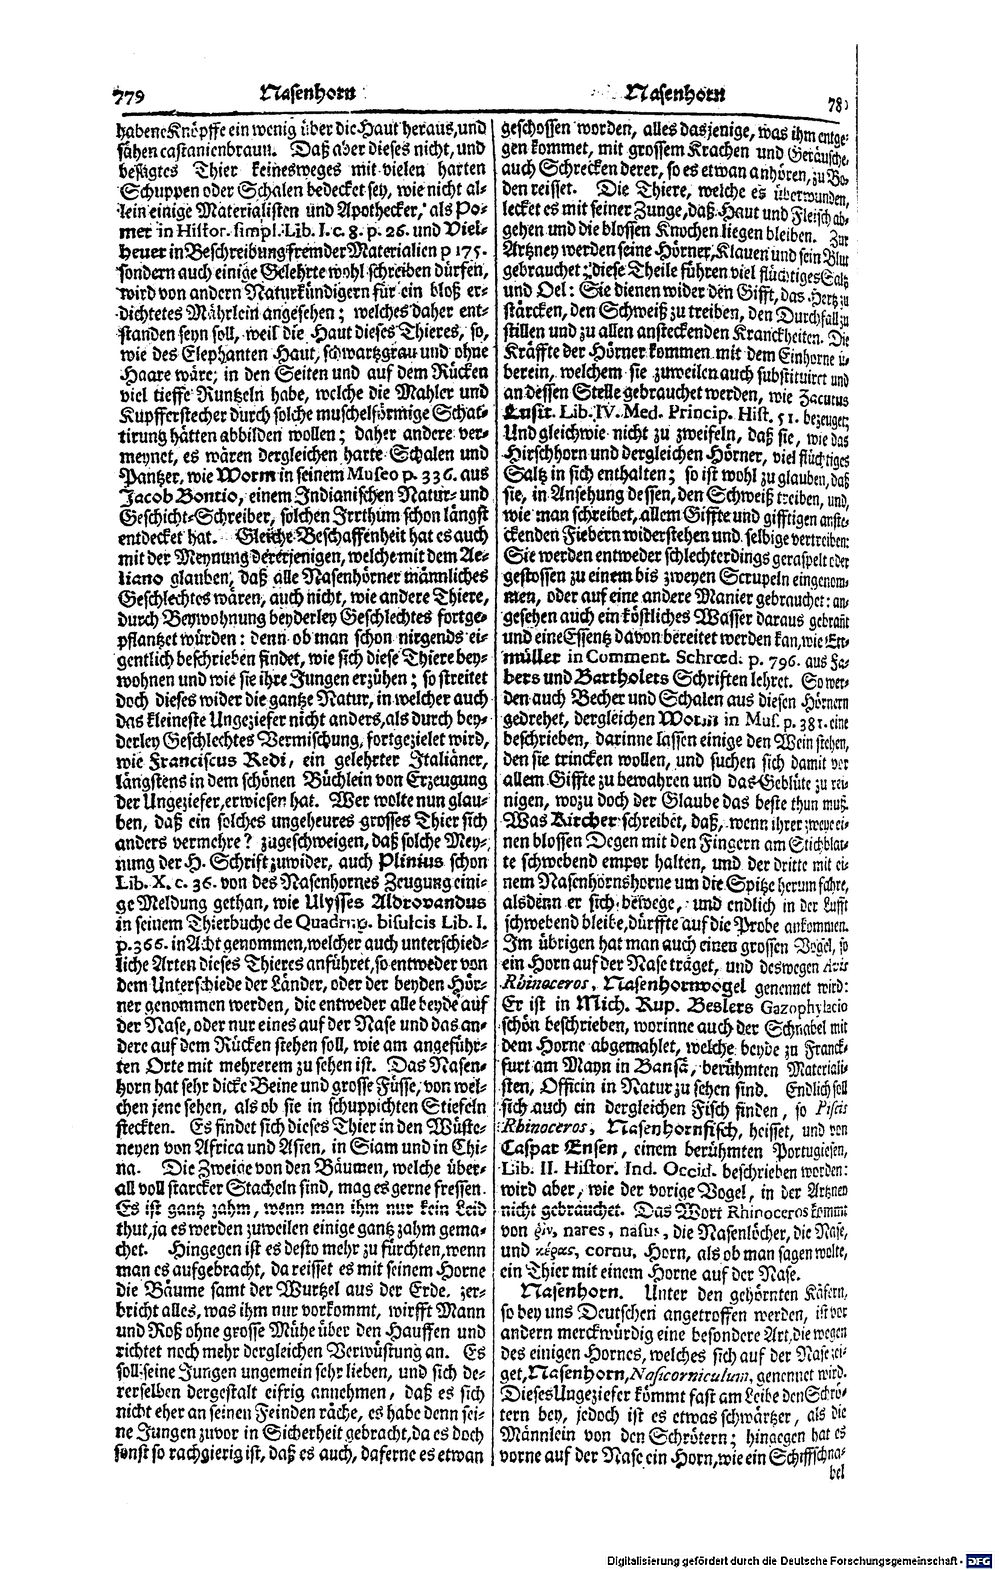 779 Nasenhorn
Nasenhorn 78
habene Knöpffe ein wenig über die Haut heraus, und
sähen castanienbraun. Daß aber dieses nicht, und
besagtes Thier keinesweges mit vielen harten
Schuppen oder Schalen bedecket sey, wie nicht al-
lein einige Materialisten und Apothecker, als Po-
mer in Histor. simpl. Lib. I. c. 8. p. 26. und Viel-
heuer in Beschreibung fremder Materialien p 175.
sondern auch einige Gelehrte wohl schreiben dürfen,
wird von andern Naturkündigern für ein bloß er-
dichtetes Mährlein angesehen; welches daher ent-
standen seyn soll, weil die Haut dieses Thieres, so,
wie des Elephanten Haut, schwartzgrau und ohne
Haare wäre; in den Seiten und auf dem Rücken
viel tieffe Runtzeln habe, welche die Mahler und
Kupfferstecher durch solche muschelförmige Schat-
tirung hätten abbilden wollen; daher andere ver-
meynet, es wären dergleichen harte Schalen und
Pantzer, wie Worm in seinem Museo p. 336. aus
Jacob Bontio, einem Indianischen Natur- und
Geschicht-Schreiber, solchen Irrthum schon längst
entdecket hat. Gleiche Beschaffenheit hat es auch
mit der Meynung dererjenigen, welche mit dem Ae-
liano glauben, daß alle Nasenhörner männliches
Geschlechtes wären, auch nicht, wie andere Thiere,
durch Beywohnung beyderley Geschlechtes fortge-
pflantzet würden: denn ob man schon nirgends ei-
gentlich beschrieben findet, wie sich diese Thiere bey-
wohnen und wie sie ihre Jungen erzühen; so streitet
doch dieses wider die gantze Natur, in welcher auch
das kleineste Ungeziefer nicht anders, als durch bey-
derley Geschlechtes Vermischung, fortgezielet wird,
wie Franciscus Redi, ein gelehrter Italiäner,
längstens in dem schönen Büchlein von Erzeugung
der Ungeziefer, erwiesen hat. Wer wolte nun glau-
ben, daß ein solches ungeheures grosses Thier sich
anders vermehre? zugeschweigen, daß solche Mey-
nung der H. Schrift zuwider, auch Plinius schon
Lib. X. c. 36. von des Nasenhornes Zeugung eini-
ge Meldung gethan, wie Ulysses Aldrovandus
in seinem Thierbuche de Quadrup. bisulcis Lib. I.
p. 366. in Acht genommen, welcher auch unterschied-
liche Arten dieses Thieres anführet, so entweder von
dem Unterschiede der Länder, oder der beyden Hör-
ner genommen werden, die entweder alle beyde auf
der Nase, oder nur eines auf der Nase und das an-
dere auf dem Rücken stehen soll, wie am angeführ-
ten Orte mit mehrerem zu sehen ist. Das Nasen-
horn hat sehr dicke Beine und grosse Füsse, von wel-
chen jene sehen, als ob sie in schuppichten Stiefeln
steckten. Es findet sich dieses Thier in den Wüste-
neyen von Africa und Asien, in Siam und in Chi-
na. Die Zweige von den Bäumen, welche über-
all voll starcker Stacheln sind, mag es gerne fressen.
Es ist gantz zahm, wenn man ihm nur kein Leid
thut, ja es werden zuweilen einige gantz zahm gema-
chet. Hingegen ist es desto mehr zu fürchten, wenn
man es aufgebracht, da reisset es mit seinem Horne
die Bäume samt der Wurtzel aus der Erde, zer-
bricht alles, was ihm nur vorkommt, wirfft Mann
und Roß ohne grosse Mühe über den Hauffen und
richtet noch mehr dergleichen Verwüstung an. Es
soll seine Jungen ungemein sehr lieben, und sich de-
rerselben dergestalt eifrig annehmen, daß es sich
nicht eher an seinen Feinden räche, es habe denn sei-
ne Jungen zuvor in Sicherheit gebracht, da es doch
sonst so rachgierig ist, daß es auch, daferne es etwan
geschossen worden, alles dasjenige, was ihm entge-
gen kommet, mit grossem Krachen und Geräusche,
auch Schrecken derer, so es etwan anhören, zu Bo-
den reisset. Die Thiere, welche es überwunden,
lecket es mit seiner Zunge, daß Haut und Fleisch ab-
gehen und die blossen Knochen liegen bleiben. Zur
Artzney werden seine Hörner, Klauen und sein Blut
gebrauchet; diese Theile führen viel flüchtiges Saltz
und Oel: Sie dienen wider den Gifft, das Hertz zu
stärcken, den Schweiß zu treiben, den Durchfall zu
stillen und zu allen ansteckenden Kranckheiten. Die
Kräffte der Hörner kommen mit dem Einhorne ü-
berein, welchem sie zuweilen auch substituiret und
an dessen Stelle gebrauchet werden, wie Zacutus
Lusit. Lib. IV. Med. Princip. Hist. 51. bezeuget;
Und gleichwie nicht zu zweifeln, daß sie, wie das
Hirschhorn und dergleichen Hörner, viel flüchtiges
Saltz in sich enthalten; so ist wohl zu glauben, daß
sie, in Ansehung dessen, den Schweiß treiben, und,
wie man schreibet, allem Giffte und gifftigen anste-
ckenden Fiebern widerstehen und selbige vertreiben:
Sie werden entweder schlechterdings geraspelt oder
gestossen zu einem bis zweyen Scrupeln eingenom-
men, oder auf eine andere Manier gebrauchet: an-
gesehen auch ein köstliches Wasser daraus gebrañt
und eine Essentz davon bereitet werden kan, wie Ett-
müller in Comment. Schrœd. p. 796. aus Fa-
bers und Bartholets Schriften lehret. So wer-
den auch Becher und Schalen aus diesen Hörnern
gedrehet, dergleichen Worm in Mus. p. 381. eine
beschrieben, darinne lassen einige den Wein stehen,
den sie trincken wollen, und suchen sich damit vor
allem Giffte zu bewahren und das Geblüte zu rei-
nigen, wozu doch der Glaube das beste thun muß.
Was Kircher schreibet, daß, wenn ihrer zweye ei-
nen blossen Degen mit den Fingern am Stichblat-
te schwebend empor halten, und der dritte mit ei-
nem Nasenhornshorne um die Spitze herum fahre,
alsdenn er sich bewege, und endlich in der Lufft
schwebend bleibe, dürffte auf die Probe ankommen.
Im übrigen hat man auch einen grossen Vogel, so
ein Horn auf der Nase träget, und deswegen Avis
Rhinoceros, Nasenhornvogel genennet wird:
Er ist in Mich. Rup. Beslers Gazophylacio
schön beschrieben, worinne auch der Schnabel mit
dem Horne abgemahlet, welche beyde zu Franck-
furt am Mayn in Bansä, berühmten Materiali-
sten, Officin in Natur zu sehen sind. Endlich soll
sich auch ein dergleichen Fisch finden, so Piscis
Rhinoceros, Nasenhornfisch, heisset, und von
Caspar Ensen, einem berühmten Portugiesen,
Lib. II. Histor. Ind. Occid. beschrieben worden:
wird aber, wie der vorige Vogel, in der Artzney
nicht gebrauchet. Das Wort Rhinoceros kommt
von ῥὶν, nares, nasus, die Nasenlöcher, die Nase,
und κέρας, cornu, Horn, als ob man sagen wolte,
ein Thier mit einem Horne auf der Nase.
Nasenhorn. Unter den gehörnten Käfern,
so bey uns Deutschen angetroffen werden, ist vor
andern merckwürdig eine besondere Art, die wegen
des einigen Hornes, welches sich auf der Nase zei-
get, Nasenhorn, Nasicorniculum, genennet wird.
Dieses Ungeziefer kömmt fast am Leibe den Schrö-
tern bey, jedoch ist es etwas schwärtzer, als die
Männlein von den Schrötern; hingegen hat es
vorne auf der Nase ein Horn, wie ein Schiffschna-
bel
Digitalisierung gefördert durch die Deutsche Forschungsgemeinschaft - DFG